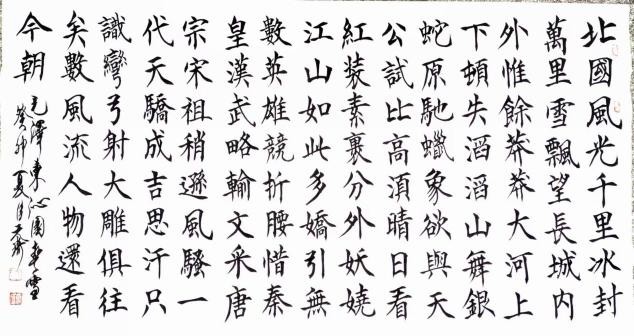 北國風光千里冰封
萬里雪飄望長城内
外惟餘莽莽大河上
下頓失滔滔山舞銀
蛇原馳蠟象欲與天
公試比高須晴日看
紅装素裹分外妖嬈
江山如此多嬌引無
數英雄競折腰惜秦
皇漢武略輸文采唐
宗宋祖稍遜風騷一
代天驕成吉思汗只
識彎弓射大雕俱往
矣數風流人物還看
今朝
毛澤東沁園春雪
癸卯夏月